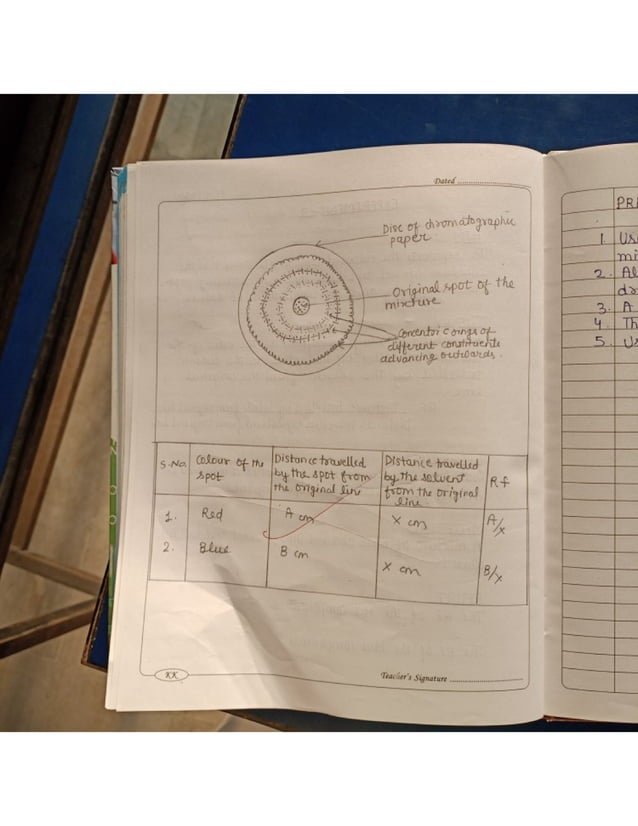 Dated
Disc of chromatographic
paper
Original spot of the
mixture
Concentric rings of
different constituents
advancing outwards.
S.No. Colour of the spot Distance travelled by the spot from the original line Distance travelled by the solvent from the original line Rf
1. Red A cm X cm A/x
2. Blue B cm X cm B/x
KK
Teacher's Signature
PR
1. Us
mi
2. Al
3. A
4. Th
5. Us